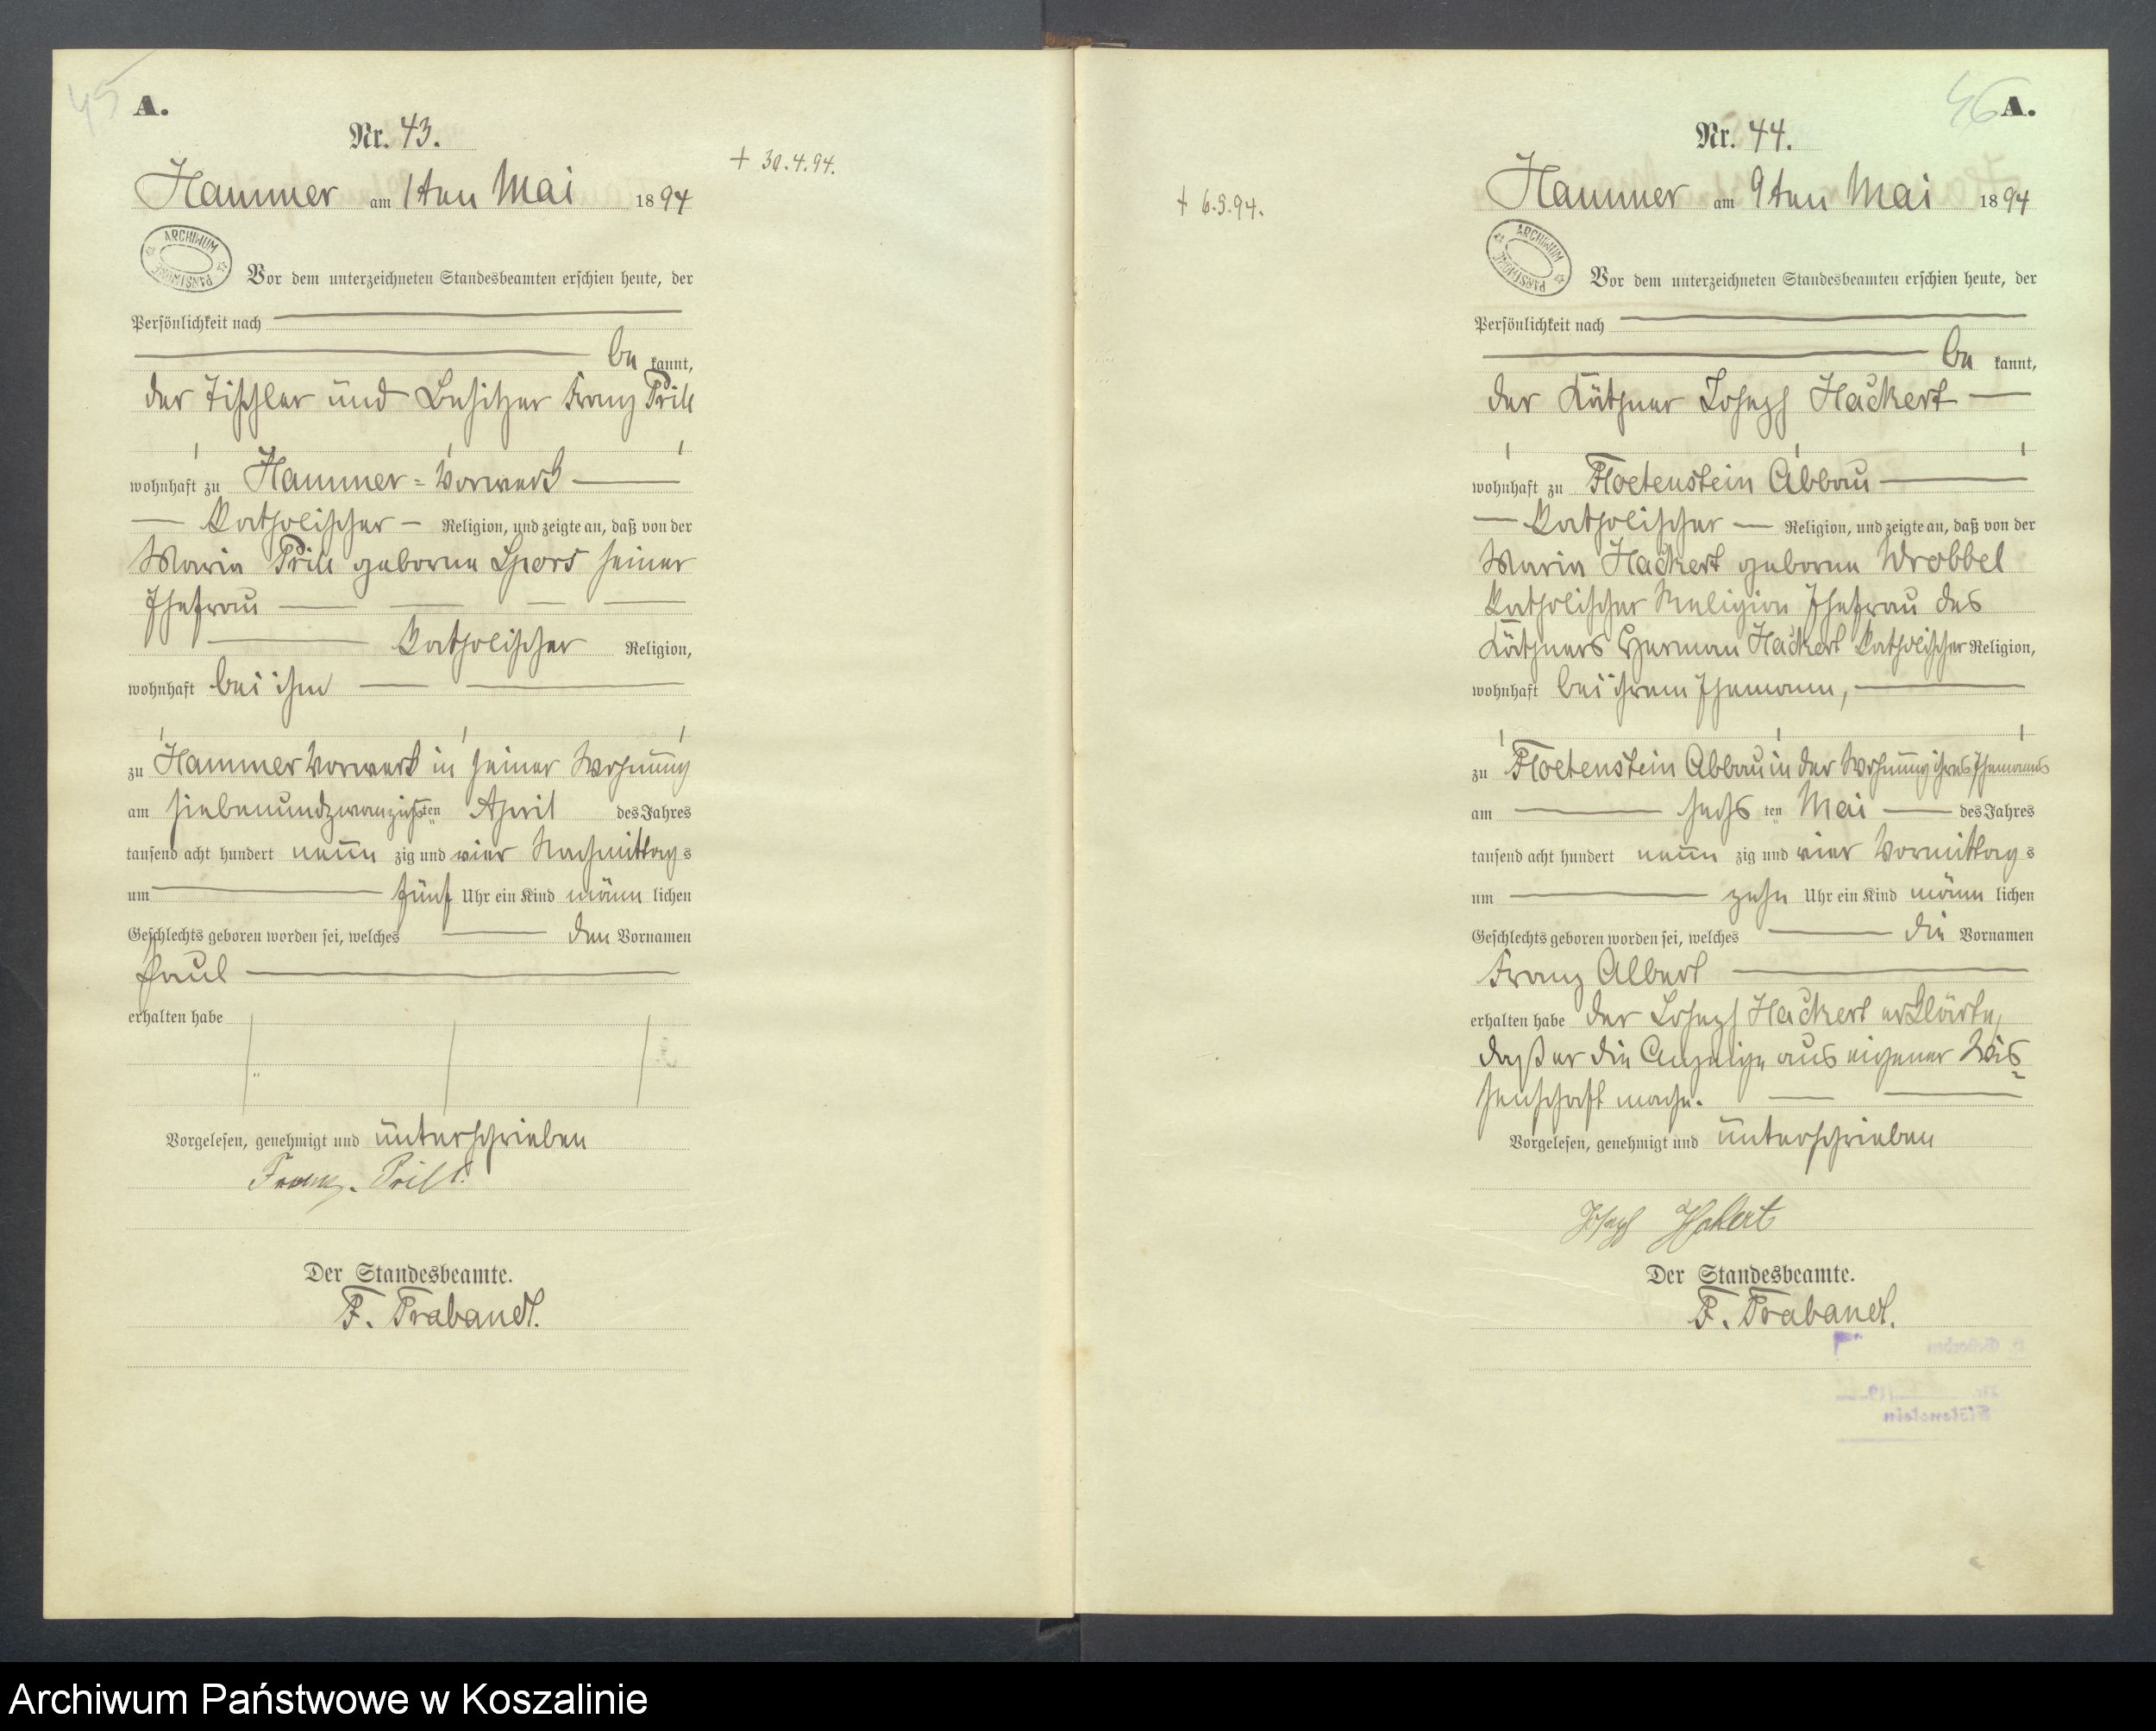 45
A.
Nr. 43.
+ 30.4.94.
Hammer am 1ten Mai 1894
ARCHIWUM PAŃSTWOWE
Vor dem unterzeichneten Standesbeamten erschien heute, der
Persönlichkeit nach
be kannt,
der Tischler und Besitzer Franz Prill
wohnhaft zu Hammer=Vorwerk
katholischer Religion, und zeigte an, daß von der
Maria Prill geborne Spors seiner
Ehefrau
katholischer Religion,
wohnhaft bei ihm
zu Hammer Vorwerk in seiner Wohnung
am siebenundzwanzigsten April des Jahres
tausend acht hundert neun zig und vier Nachmittag s
um fünf Uhr ein Kind männ lichen
Geschlechts geboren worden sei, welches den Vornamen
Paul
erhalten habe
Vorgelesen, genehmigt und unterschrieben
Franz. Prill.
Der Standesbeamte.
F. Trabandt.
46
A.
Nr. 44.
+ 6.5.94.
Hammer am 9ten Mai 1894
ARCHIWUM PAŃSTWOWE
Vor dem unterzeichneten Standesbeamten erschien heute, der
Persönlichkeit nach
be kannt,
der Käthner Joseph Hackert
wohnhaft zu Floetenstein Abbau
katholischer Religion, und zeigte an, daß von der
Maria Hackert geborne Wrobbel
katholischer Religion Ehefrau des
Käthners Herman Hackert katholischer Religion,
wohnhaft bei ihrem Ehemann,
zu Floetenstein Abbau in der Wohnung ihres Ehemanns
am sechs ten Mai des Jahres
tausend acht hundert neun zig und vier Vormittag s
um zehn Uhr ein Kind männ lichen
Geschlechts geboren worden sei, welches die Vornamen
Franz Albert
erhalten habe der Joseph Hackert erklärte,
daß er die Anzeige aus eigener Wis=
senschaft mache.
Vorgelesen, genehmigt und unterschrieben
Joseph Hakert
Der Standesbeamte.
F. Trabandt.
Archiwum Państwowe w Koszalinie